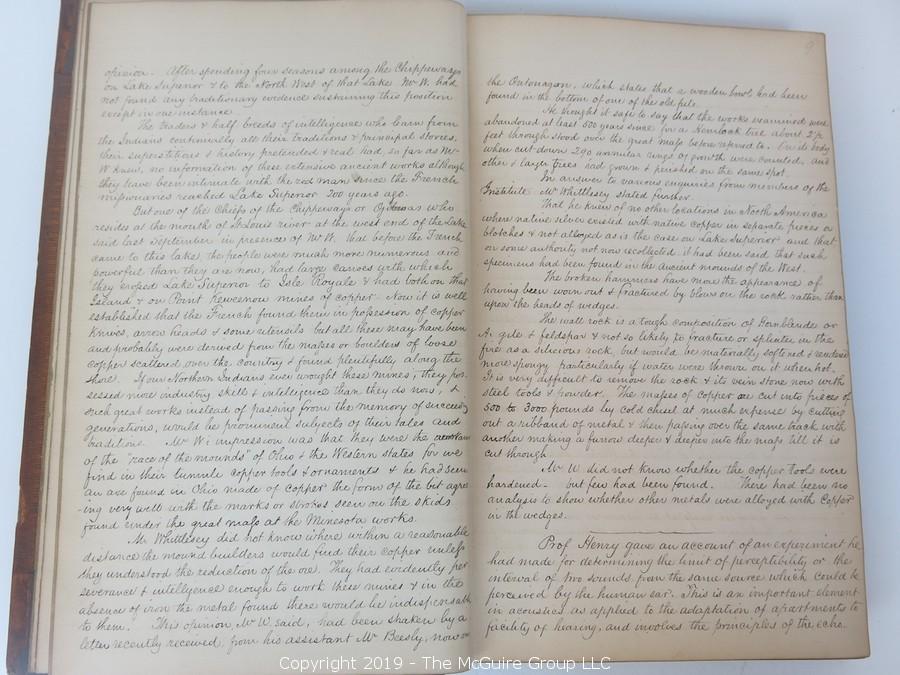 opinion. After spending four seasons among the Chippeways
on Lake Superior & to the North West of that Lake Mr W. had
not found any traditionary evidence sustaining this position
except in one instance.
The traders & half breeds of intelligence who learn from
the Indians continually all their traditions & principal stories,
their superstitions & history pretended & real had, so far as Mr
W knew, no information of these extensive ancient works although
they have been intimate with the red man since the French
missionaries reached Lake Superior 200 years ago.
But one of the Chiefs of the Chippeways or Ojibwas who
resides at the mouth of St Louis river at the west end of the Lake
said last September in presence of Mr W. that before the French
came to this lake, the people were much more numerous and
powerful than they are now, had large canoes with which
they crossed Lake Superior to Isle Royale & had both on that
Island & on Point Kewenow mines of copper. Now it is well
established that the French found them in possession of copper
knives, arrow heads & some utensils but all these may have been
and probably were derived from the masses or boulders of loose
copper scattered over the country & found plentifully along the
shore. If our Northern Indians ever wrought these mines, they pos-
sessed more industry skill & intelligence than they do now, &
such great works instead of passing from the memory of succeeding
generations, would be prominent subjects of their tales and
traditions. Mr W's impression was that they were the
of the "race of the mounds" of Ohio & the Western states for we
find in their tumuli copper tools & ornaments & he had seen
an axe found in Ohio made of copper the form of the bit agree
-ing very well with the marks or strokes seen on the skids
found under the great mass at the Minesota works.
Mr Whittlesey did not know where within a reasonable
distance the mound builders would find their copper unless
they understood the reduction of the ore. They had evidently per
severance & intelligence enough to work these mines & in the
absence of iron the metal found there would be indispensable
to them. This opinion, Mr W. said, had been shaken by a
letter recently received from his assistant Mr Beesly, now on
9
the Ontonagon, which states that a wooden bowl had been
found in the bottom of one of the old pits.
He thought it safe to say that the works examined were
abandoned at least 500 years since for a Hemlock tree about 2½
feet through stood over the great mass before referred to. On its body
when cut down 290 annular rings of growth were counted, and
other & larger trees had grown & perished on the same spot.
In answer to various enquiries from members of the
Institute Mr Whittlesey stated further.
That he knew of no other locations in North America
where native silver existed with native copper in separate pieces or
blotches & not alloyed as is the case on Lake Superior and that
on some authority not now recollected it had been said that such
specimens had been found in the ancient mounds of the West.
The broken hammers have more the appearance of
having been worn out & fractured by blows on the rock rather than
upon the heads of wedges.
The wall rock is a tough composition of Hornblende or
Augite & feldspar & not so likely to fracture or splinter in the
fire as a silicious rock, but would be materially softened & rendered
more spongy particularly if water were thrown on it when hot.
It is very difficult to remove the rock & its vein stone now with
steel tools & powder. The masses of copper are cut into pieces of
500 to 3000 pounds by cold chisel at much expense by cutting
out a ribband of metal & then passing over the same track with
another making a furrow deeper & deeper into the mass till it is
cut through.
Mr W. did not know whether the copper tools were
hardened - but few had been found. There had been no
analysis to show whether other metals were alloyed with Copper
in the wedges.
Prof Henry gave an account of an experiment he
had made for determining the limit of perceptibility or the
interval of two sounds from the same source which could be
perceived by the human ear. This is an important element
in acoustics as applied to the adaptation of apartments to
facility of hearing, and involves the principles of the echo.
Copyright 2019 - The McGuire Group LLC